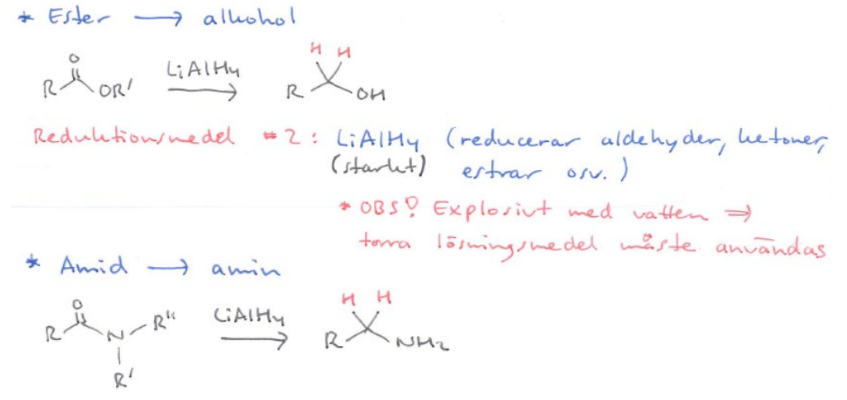 * Ester → alkohol
O
R OR' LiAlH4 → H H R OH
Reduktionsmedel #2: LiAlH4 (reducerar aldehyder, ketoner,
(starkt) estrar osv.)
* OBS! Explosivt med vatten ⇒
torra lösningsmedel måste användas
* Amid → amin
O
R N R" LiAlH4 → H H R NH2
R'